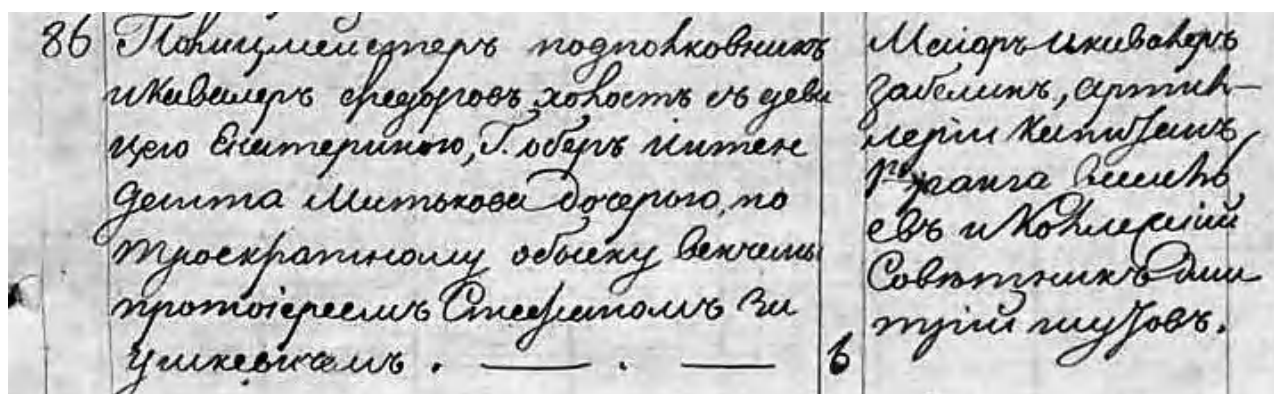 86 Полицмейстеръ подполковникъ
и Кавалеръ Федоровъ, холостъ съ деви
цею Екатериною, Г. оберъ интен
дента Митькова Дочерью, по
троекратному обыску венчаны
протоіереемъ Стефаномъ Зи
ушкевичемъ. — . —
6
Маіоръ и кавалеръ
Забелинъ, артил-
леріи Капитанъ
1го ранга
евъ и Коллежскій
Совѣтникъ Дми
трій шузовъ.